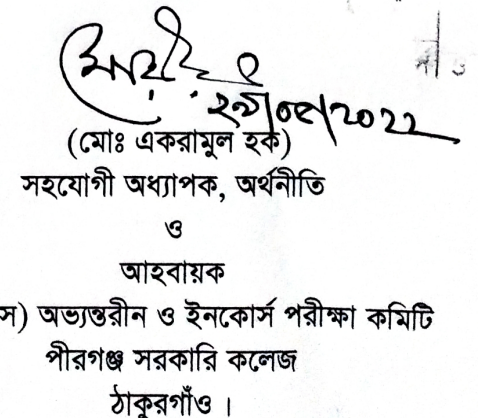 (মোঃ একরামুল হক)
সহযোগী অধ্যাপক, অর্থনীতি
ও
আহবায়ক
স) অভ্যন্তরীন ও ইনকোর্স পরীক্ষা কমিটি
পীরগঞ্জ সরকারি কলেজ
ঠাকুরগাঁও ।